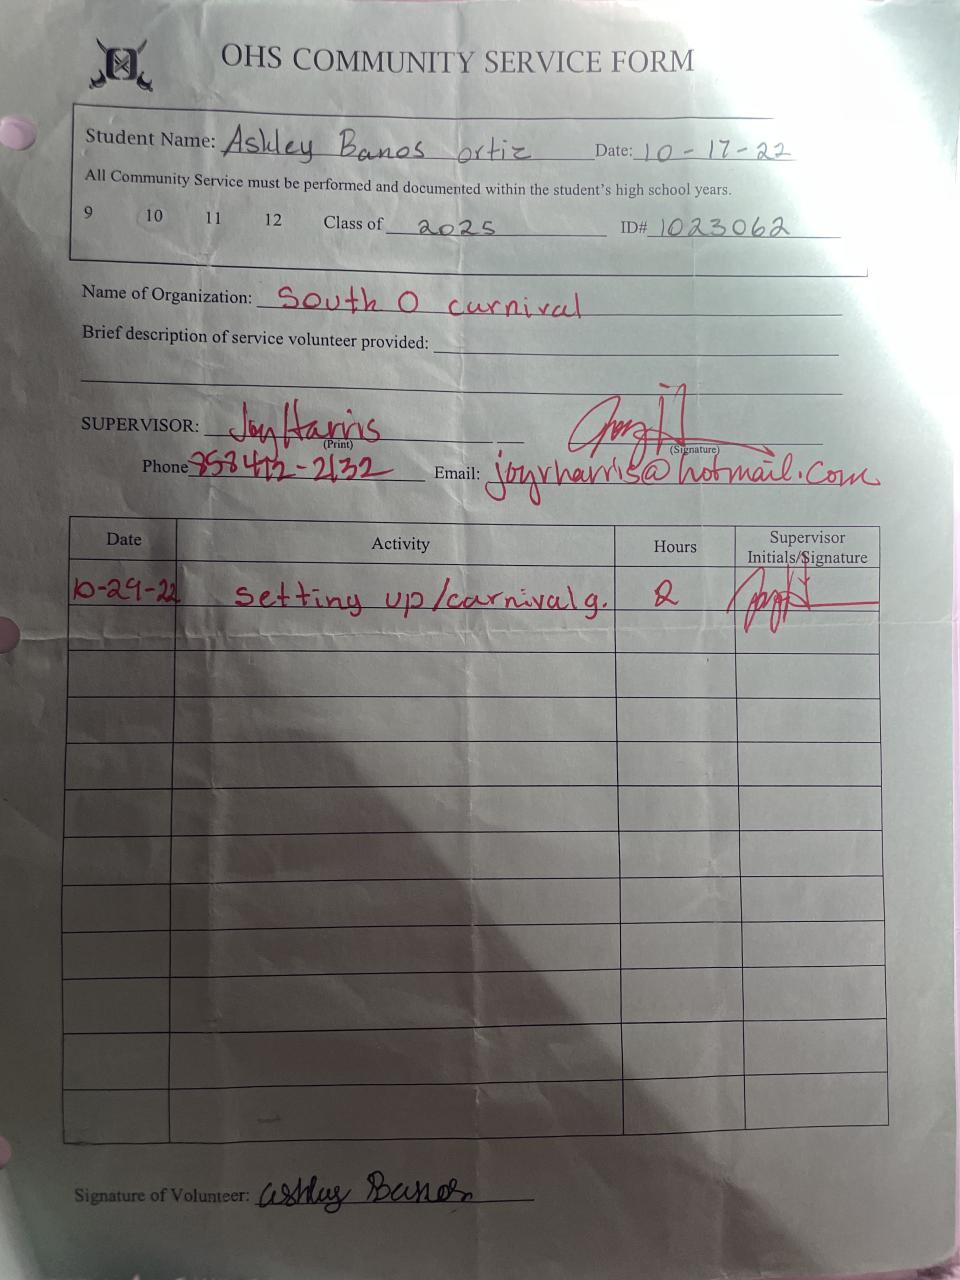 OHS COMMUNITY SERVICE FORM
Student Name: Ashley Banos ortiz Date: 10-17-22
All Community Service must be performed and documented within the student's high school years.
9 10 11 12 Class of 2025 ID# 1023062
Name of Organization: South O curnival
Brief description of service volunteer provided:
SUPERVISOR: Joy Harris
(Print) (Signature)
Phone 858 472-2132 Email: joyrharris@hotmail.com
Date Activity Hours Supervisor Initials/Signature
10-29-22 setting up/carnival g. 2
Signature of Volunteer: Ashley Banos